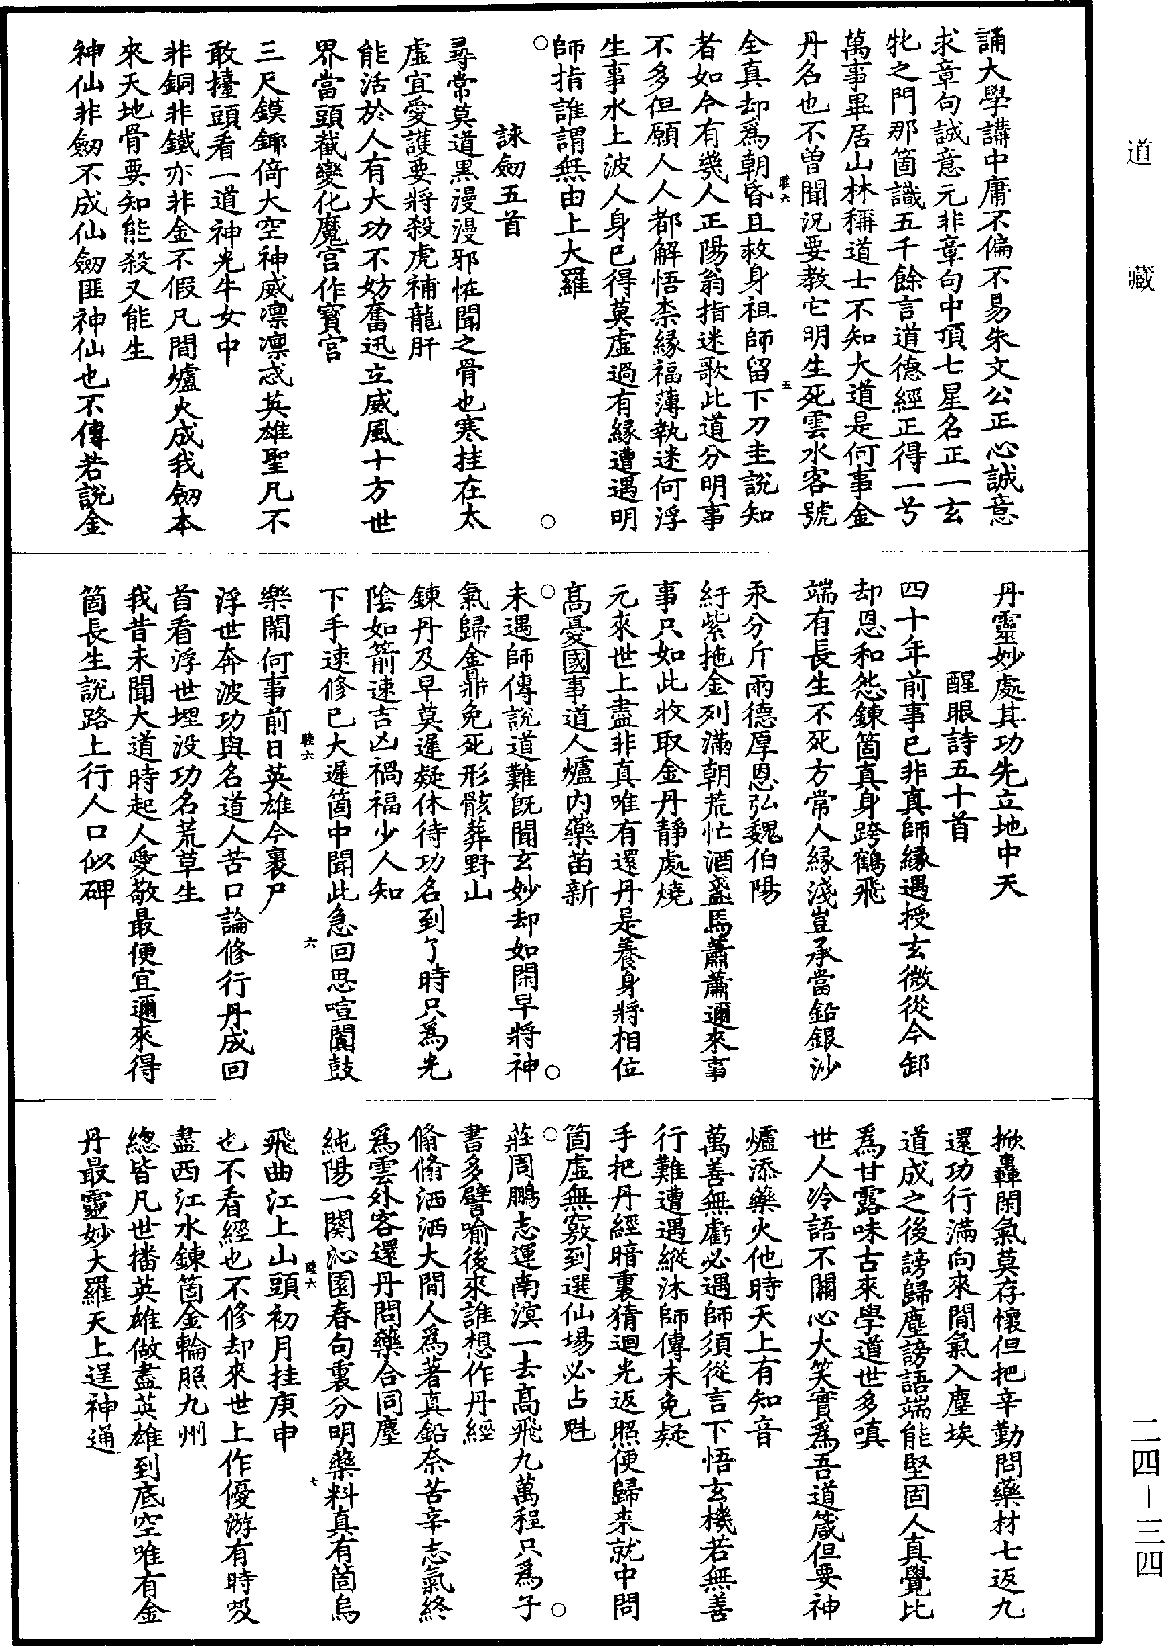 道藏
誦大學講中庸不偏不易朱文公正心誠意
求章句誠意元非章句中頂七星名正一玄
牝之門那箇識五千餘言道德經正得一号
萬事畢居山林稱道士不知大道是何事金
丹名也不曾聞況要教它明生死雲水客號
全真却為朝昏且救身祖師留下刀圭說知
者如今有幾人正陽翁指迷歌此道分明事
不多但願人人都解悟柰緣福薄執迷何浮
生事水上波人身已得莫虛過有緣遭遇明
師指誰謂無由上大羅
詠劒五首
尋常莫道黑漫漫邪怪聞之骨也寒挂在太
虛宜愛護要將殺虎補龍肝
能活於人有大功不妨奮迅立威風十方世
界當頭截變化魔宮作寶宮
三尺鏌鎁倚大空神威凛凛忒英雄聖凡不
敢擡頭看一道神光牛女中
非銅非鐵亦非金不假凡間爐火成我劒本
來天地骨要知能殺又能生
神仙非劒不成仙劒匪神仙也不傳若說金
丹靈妙處其功先立地中天
醒眼詩五十首
四十年前事已非真師緣遇授玄微從今卸
却恩和怨鍊箇真身跨鶴飛
端有長生不死方常人緣淺豈承當鉛銀沙
汞分斤兩德厚恩弘魏伯陽
紆紫拖金列滿朝荒忙酒盞馬蕭蕭邇來事
事只如此收取金丹靜處燒
元來世上盡非真唯有還丹是養身將相位
高憂國事道人爐內藥苗新
未遇師傳說道難旣聞玄妙却如閑早將神
氣歸金鼎免死形骸葬野山
鍊丹及早莫遲疑休待功名到了時只為光
陰如箭速吉凶禍福少人知
下手速修已大遲箇中聞此急回思喧闐鼓
樂鬧何事前日英雄今裹尸
浮世奔波功與名道人苦口論修行丹成回
首看浮世埋没功名荒草生
我昔未聞大道時起人愛敬最便宜邇來得
箇長生說路上行人口似碑
掀轟閑氣莫存懷但把辛勤問藥材七返九
還功行滿向來閒氣入塵埃
道成之後謗歸塵謗語端能堅固人真覺比
為甘露味古來學道世多嗔
世人冷語不關心大笑實為吾道箴但要神
爐添藥火他時天上有知音
萬善無虧必遇師須從言下悟玄機若無善
行難遭遇縱沐師傳未免疑
手把丹經暗裏猜迴光返照便歸來就中問
箇虛無竅到選仙場必占魁
莊周鵬志運南溟一去高飛九萬程只為子
書多譬喻後來誰想作丹經
翛翛洒洒大閒人為著真鉛奈苦辛志氣終
為雲外客還丹問藥合同塵
純陽一闋沁園春句裏分明藥料真有箇烏
飛曲江上山頭初月挂庚申
也不看經也不修却來世上作優游有時吸
盡西江水鍊箇金輪照九州
總皆凡世播英雄做盡英雄到底空唯有金
丹最靈妙大羅天上逞神通
陸六
五
陸六
六
陸六
七
二四—三四